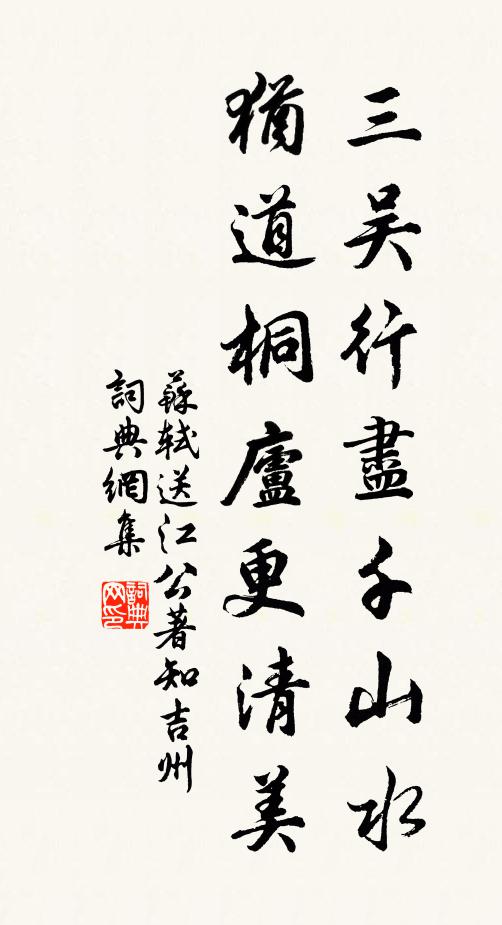 三吴行盡千山水
猶道桐廬更清美
蘇軾送江公著知吉州
詞典網集
詞典网印